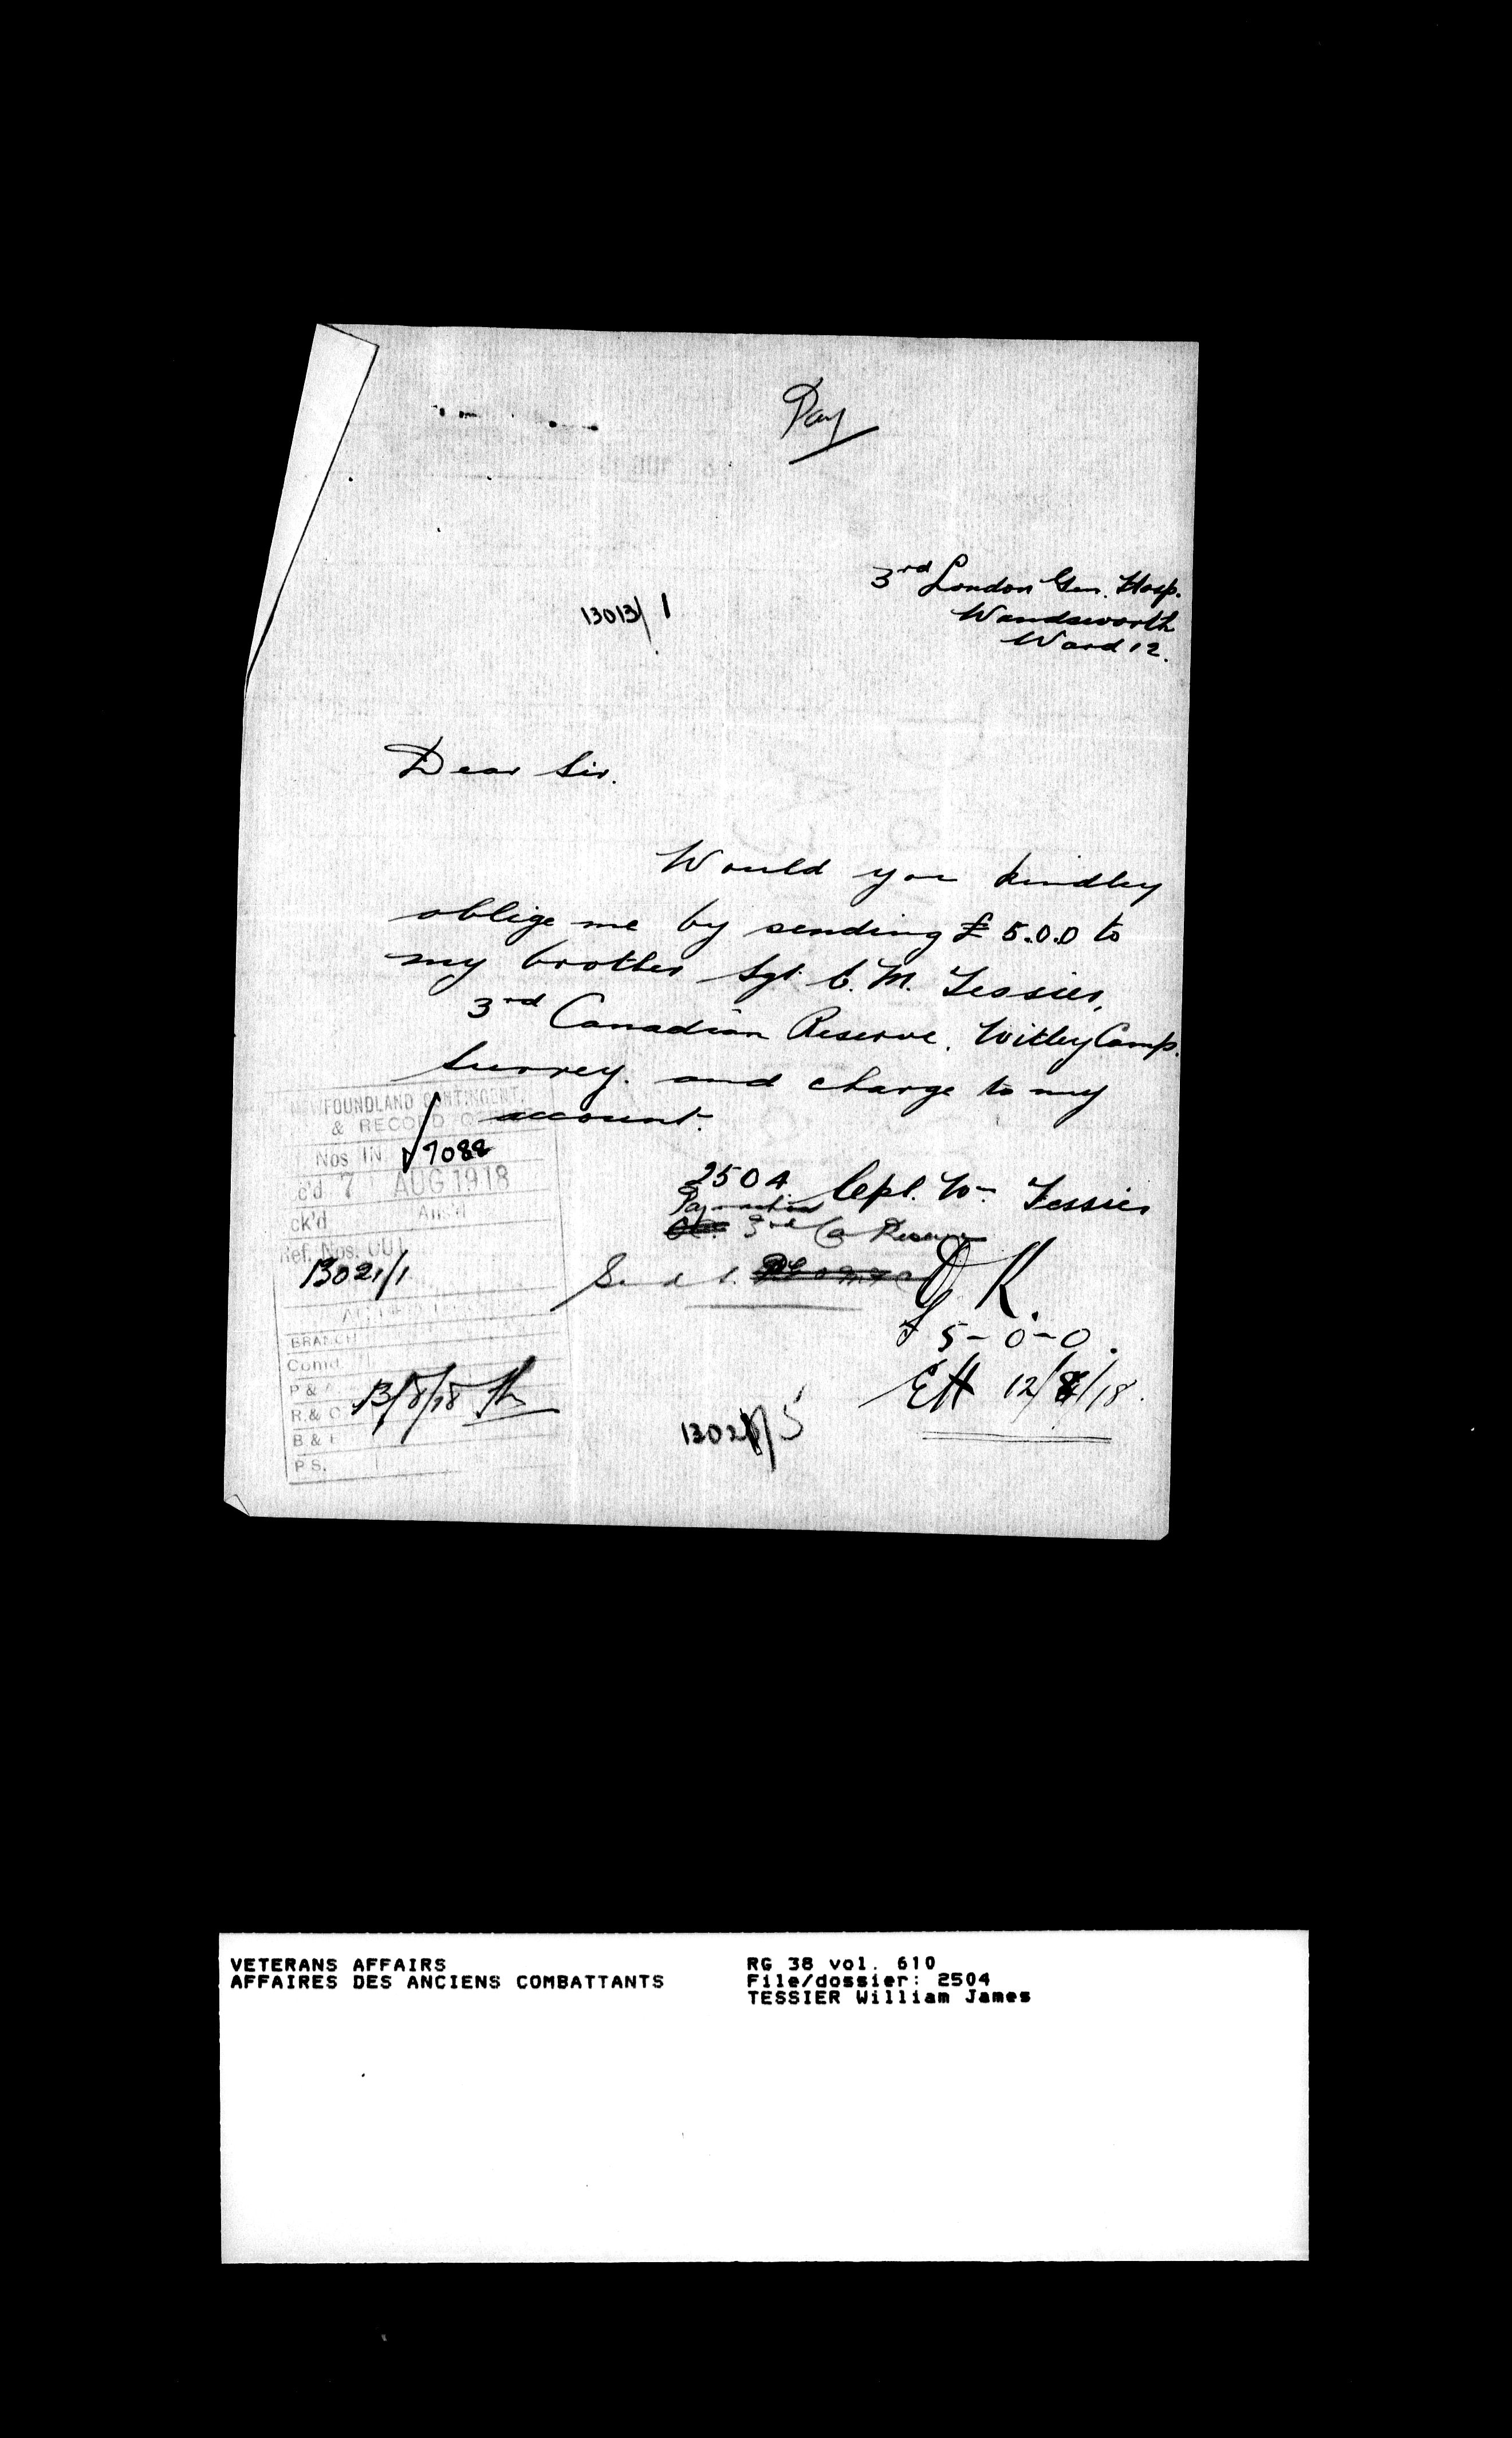 Pay
3rd London Gen. Hosp.
Wandsworth
Ward 12.
13013/1
Dear Sir.
Would you kindley
oblige me by sending £ 5.0.0 to
my brother Sgt. C. M. Tessier,
3rd Canadian Reserve. Witley Camp.
Surrey. and charge to my
account.
NEWFOUNDLAND CONTINGENT.
& RECORD
Nos IN 7088
c'd 7 AUG 1918
ck'd Ans'd
Ref. Nos. OUT
13021/1
BRANCH
Comd.
P &
R. &
B &
P S.
13/8/18
2504 Cpl. Wm Tessier
Paymaster
3rd Ca Reserve
Send
O K.
£ 5-0-0.
EH 12/8/18.
VETERANS AFFAIRS
AFFAIRES DES ANCIENS COMBATTANTS
RG 38 vol. 610
File/dossier: 2504
TESSIER William James